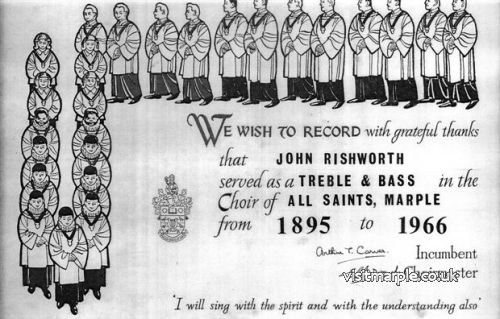 WE WISH TO RECORD with grateful thanks
that JOHN RISHWORTH
served as a TREBLE & BASS in the
Choir of ALL SAINTS, MARPLE
from 1895 to 1966
Arthur T. Carver Incumbent
visitmarple.co.uk
'I will sing with the spirit and with the understanding also'